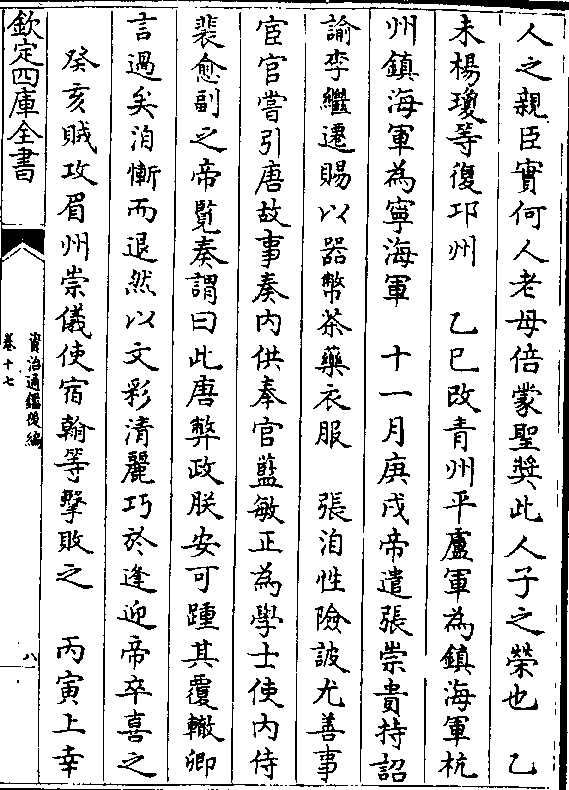 人之親臣實何人老母倍蒙聖奬此人子之榮也　乙
未楊瓊等復邛州　乙巳改青州平盧軍為鎮海軍杭
州鎮海軍為寧海軍　十一月庚戌帝遣張崇貴持詔
諭李繼遷賜以器幣茶藥衣服　張洎性險詖尤善事
宦官嘗引唐故事奏内供奉官藍敏正為學士使内侍
裴愈副之帝覧奏謂曰此唐弊政朕安可踵其覆轍卿
言過矣洎慚而退然以文彩清麗巧於逢迎帝卒喜之
癸亥賊攻眉州崇儀使宿翰等擊敗之　丙寅上幸
欽定四庫全書
資治通鑑後編
卷十七
八